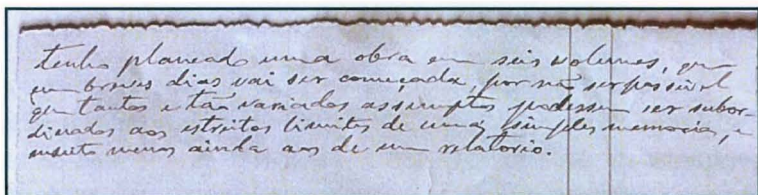 tenho planeado uma obra em seis volumes, que
em breves dias vai ser começada, por não ser possivel
que tantos e tão variados assumptos podessem ser subor-
dinados aos estreitos limites de uma simples memoria, e
muito menos ainda aos de um relatorio.